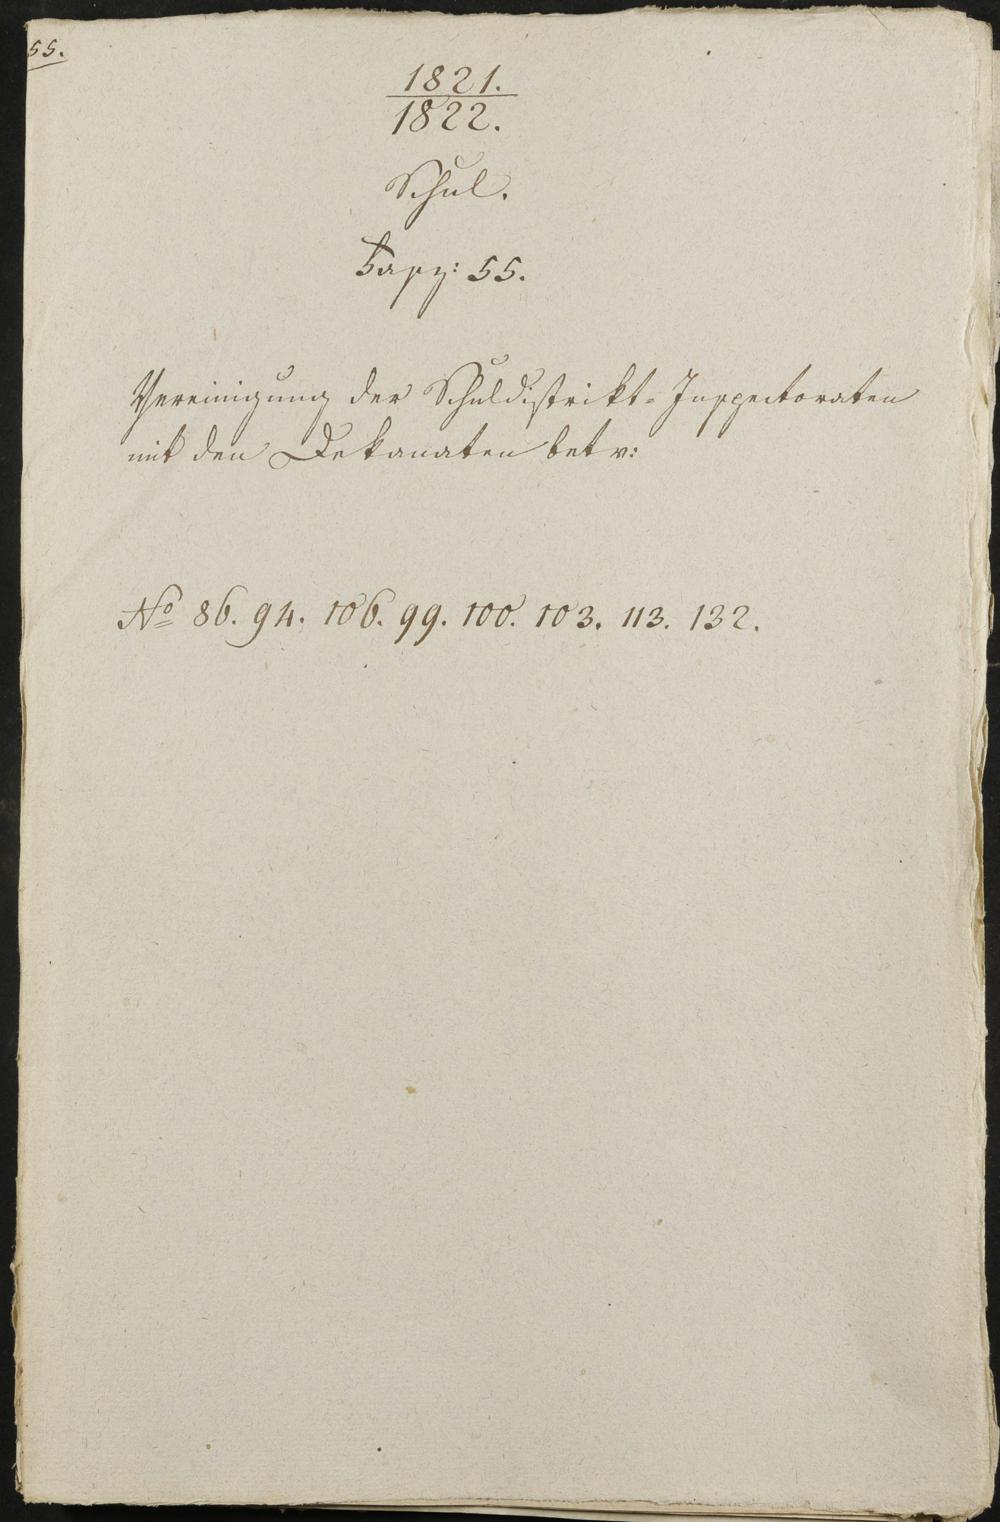 55.
1821.
1822.
Schul.
Fasz: 55.
Vereinigung der Schuldistrikt-Inspectoraten
mit den Dekanaten betr:
No 86. 94. 106. 99. 100. 103. 113. 132.